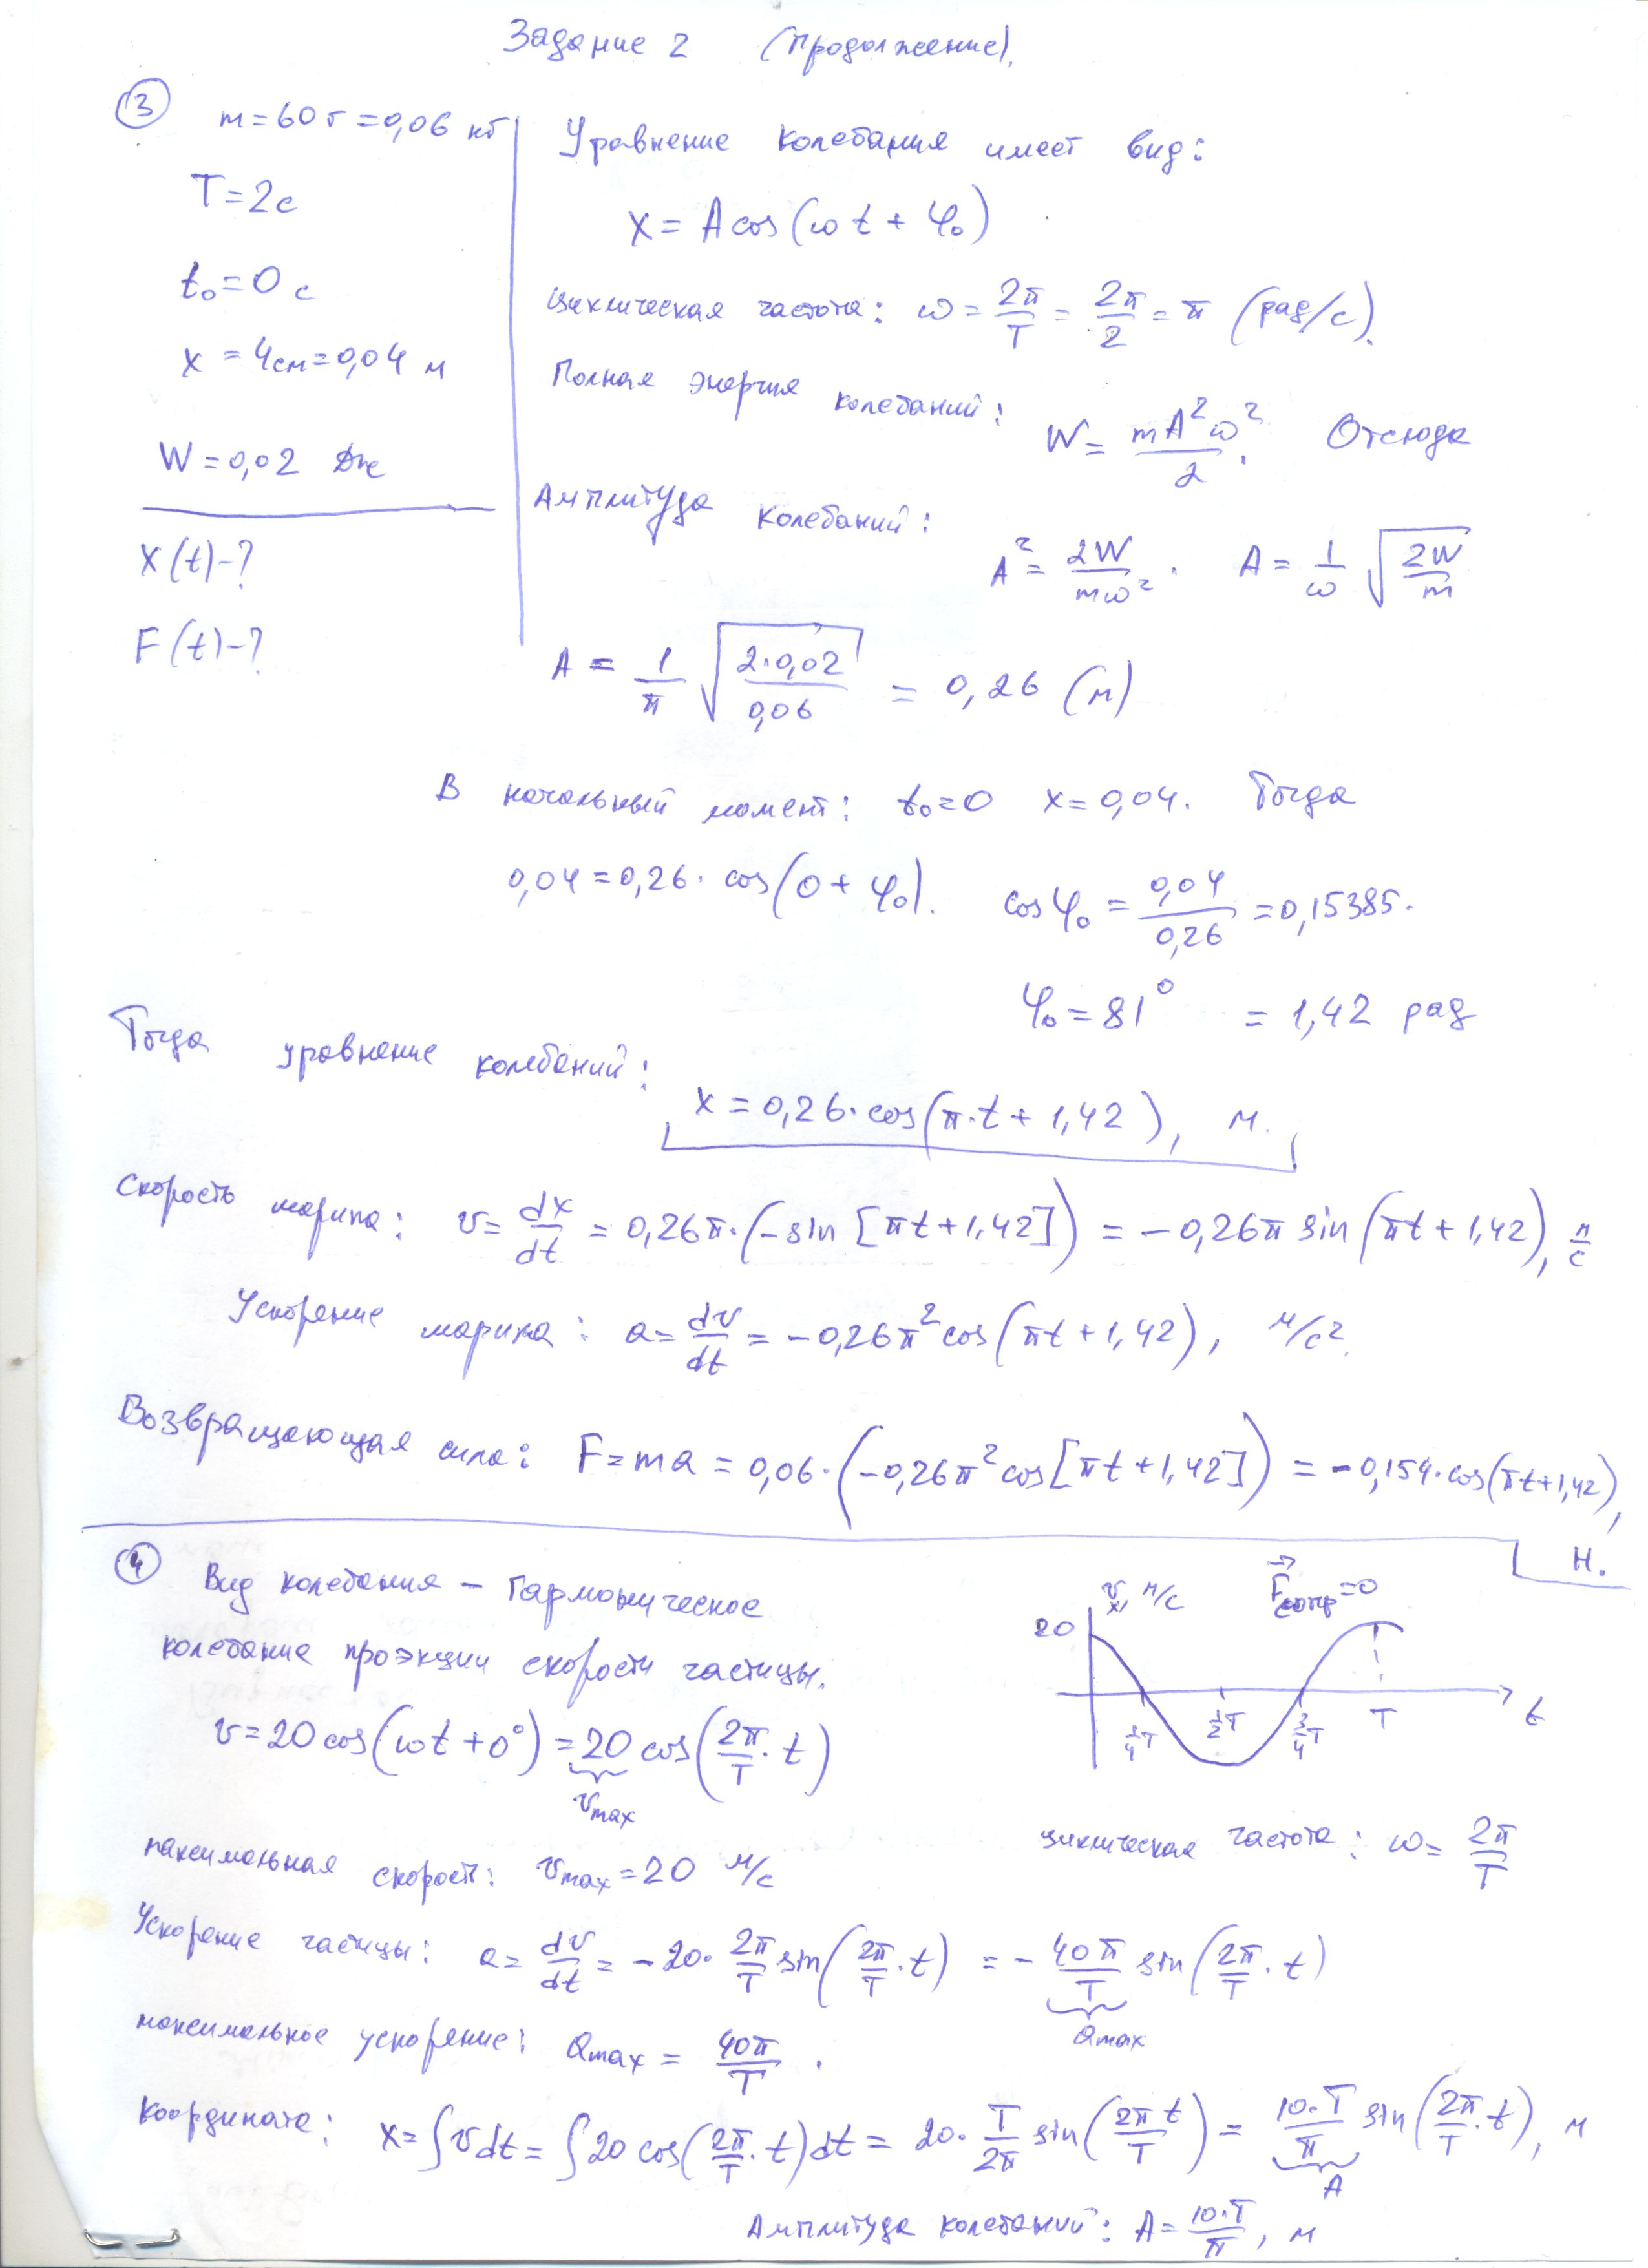 Задание 2 (продолжение).
③ m = 60 г = 0,06 кг
T = 2 с
t₀ = 0 с
x = 4 см = 0,04 м
W = 0,02 Дж
X(t) - ?
F(t) - ?
Уравнение колебания имеет вид:
X = A cos(ωt + φ₀)
Циклическая частота: ω = 2π/T = 2π/2 = π (рад/с).
Полная энергия колебаний: W = mA²ω²/2. Отсюда
Амплитуда колебаний:
A² = 2W/mω². A = 1/ω √(2W/m)
A = 1/π √(2·0,02/0,06) = 0,26 (м)
В начальный момент: t₀=0 x=0,04. Тогда
0,04 = 0,26 · cos(0 + φ₀). cos φ₀ = 0,04/0,26 = 0,15385.
φ₀ = 81° = 1,42 рад
Тогда уравнение колебаний:
X = 0,26 · cos(π·t + 1,42), м.
Скорость шарика: v = dx/dt = 0,26π·(-sin[πt+1,42]) = -0,26π sin(πt+1,42), м/с
Ускорение шарика: a = dv/dt = -0,26π² cos(πt+1,42), м/с².
Возвращающая сила: F = ma = 0,06·(-0,26π² cos[πt+1,42]) = -0,154·cos(πt+1,42),
Н.
④ Вид колебания – гармоническое
колебание проэкции скорости частицы.
v = 20 cos(ωt + 0°) = 20 cos(2π/T · t)
vmax
vₓ, м/с
F⃗сопр = 0
20
1/4 T
1/2 T
3/4 T
T
t
максимальная скорость: vmax = 20 м/с
циклическая частота: ω = 2π/T
Ускорение частицы: a = dv/dt = -20· 2π/T sin(2π/T · t) = - 40π/T sin(2π/T · t)
amax
максимальное ускорение: amax = 40π/T .
координата: X = ∫v dt = ∫20 cos(2π/T · t)dt = 20· T/2π sin(2πt/T) = 10·T/π sin(2π/T · t), м
A
Амплитуда колебаний: A = 10·T/π, м